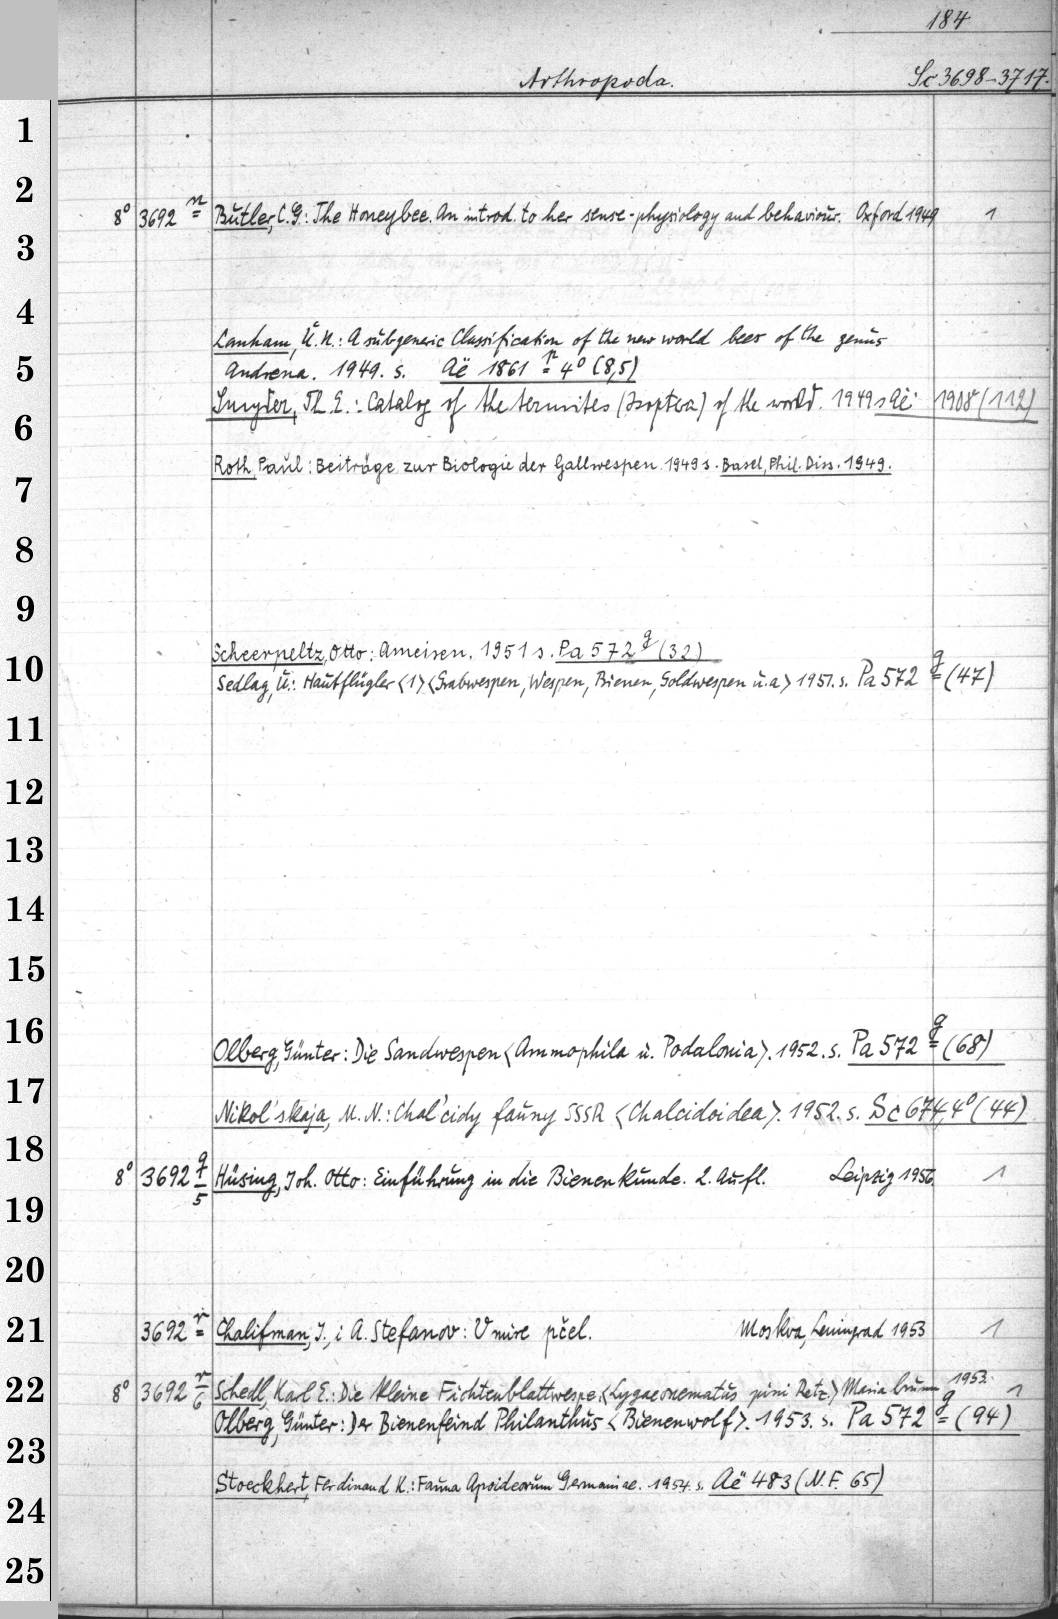 184
Arthropoda. Sc 3698-3717.
1
2
8° 3692 n Butler, C.G.: The Honeybee. An introd. to her sense-physiology and behaviour. Oxford 1949 1
3
4
Lanham, U.N.: A subgeneric Classification of the new world bees of the genus
5
Andrena. 1949. s. Aë 1861 n 4° (8,5)
Snyder, Th. E.: Catalog of the termites (Isoptera) of the world. 1949 s Aë 1908 (112)
6
Roth, Paul: Beiträge zur Biologie der Gallwespen. 1949 s. Basel, Phil. Diss. 1949.
7
8
9
Scheerpeltz, Otto: Ameisen. 1951 s. Pa 572 g (32)
10
Sedlag, U.: Hautflügler <1> <Grabwespen, Wespen, Bienen, Goldwespen u.a> 1951. s. Pa 572 g (47)
11
12
13
14
15
16
Olberg, Günter: Die Sandwespen <Ammophila u. Podalonia>. 1952. s. Pa 572 g (68)
17
Nikol'skaja, M. N.: Chal'cidy fauny SSSR <Chalcidoidea>. 1952. s. Sc 674, 4° (44)
18
8° 3692 q/5 Hüsing, Joh. Otto: Einführung in die Bienenkunde. 2. Aufl. Leipzig 1956. 1
19
20
21 3692 r Chalifman, I. i A. Stefanov: V mire pčel. Moskva, Leningrad 1953 1
22 8° 3692 r/6 Schedl, Karl E.: Die kleine Fichtenblattwespe. <Lygaeonematus pini Retz.> Mariabrunn 1953. 1
Olberg, Günter: Der Bienenfeind Philanthus <Bienenwolf>. 1953. s. Pa 572 g (94)
23
Stoeckhert, Ferdinand K.: Fauna Apoideorum Germaniae. 1954. s. Aë 483 (N.F. 65)
24
25